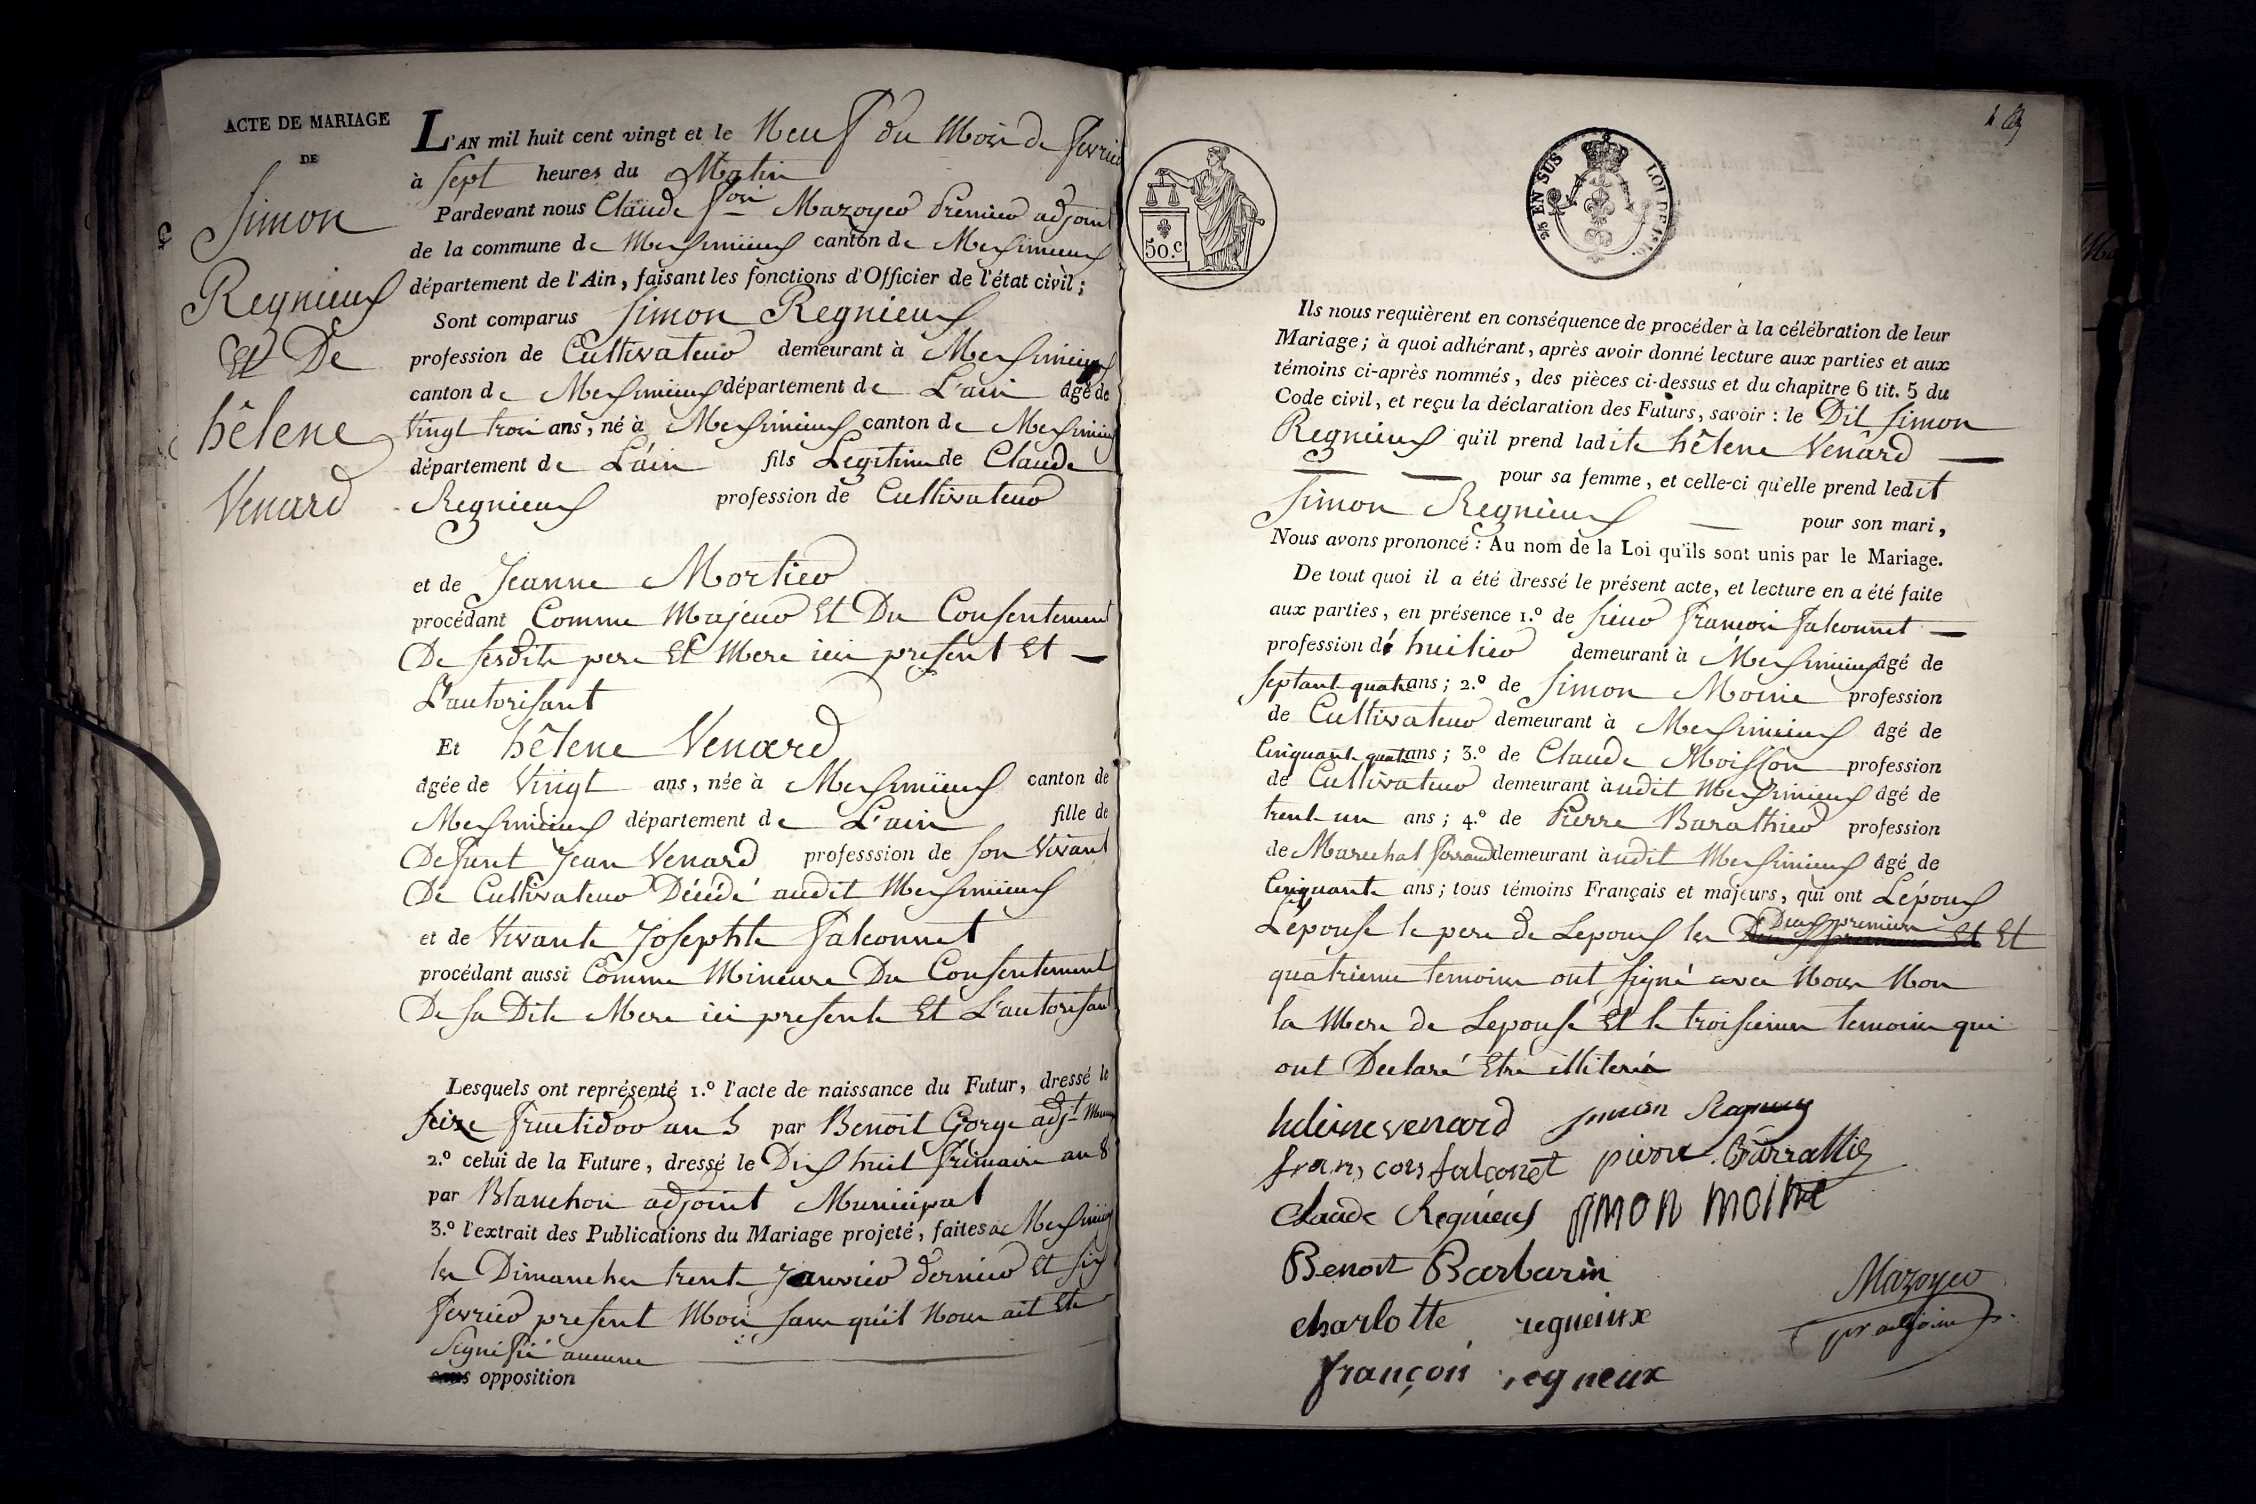 ACTE DE MARIAGE
DE
Simon
Regnieux
Et De
hêlene
Venard
L'AN mil huit cent vingt et le Neuf du Mois de fevrier
à sept heures du Matin
Pardevant nous Claude fois Mazoyer Premier adjoint
de la commune de Meximieux canton de Meximieux
département de l'Ain, faisant les fonctions d'Officier de l'état civil;
Sont comparus Simon Regnieux
profession de Cultivateur demeurant à Meximieux
canton de Meximieux département de L'ain âgé de
Vingt trois ans, né à Meximieux canton de Meximieux
département de L'ain fils Legitime de Claude
Regnieux profession de Cultivateur
et de Jeanne Mortier
procédant Comme Majeur Et Du Consentement
De sesdits pere Et Mere ici present Et
L'autorisant
Et hêlene Venard
âgée de Vingt ans, née à Meximieux canton de
Meximieux département de L'ain fille de
Defunt Jean Venard professsion de son Vivant
De Cultivateur Décédé audit Meximieux
et de Vivante Josephte Falconnet
procédant aussi Comme Mineure Du Consentement
De sa Dite Mere ici presente Et L'autorisant
Lesquels ont représenté 1.º l'acte de naissance du Futur, dressé le
seize fructidor an 5 par Benoit Gorge adjt
2.º celui de la Future, dressé le Dix huit frimaire an 8
par Blanchon adjoint Municipal
3.º l'extrait des Publications du Mariage projeté, faites à Meximieux
les Dimanches trente Janvier dernier Et six
fevrier present Mois sans qu'il Nous ait Eté
Signifié aucune
opposition
50.c
25 EN SUS
LOI DE 1816.
Ils nous requièrent en conséquence de procéder à la célébration de leur
Mariage; à quoi adhérant, après avoir donné lecture aux parties et aux
témoins ci-après nommés, des pièces ci-dessus et du chapitre 6 tit. 5 du
Code civil, et reçu la déclaration des Futurs, savoir : le Dit Simon
Regnieux qu'il prend ladite hêlene Venard
pour sa femme, et celle-ci qu'elle prend ledit
Simon Regnieux pour son mari,
Nous avons prononcé : Au nom de la Loi qu'ils sont unis par le Mariage.
De tout quoi il a été dressé le présent acte, et lecture en a été faite
aux parties, en présence 1.º de Sieur François Falconnet
profession d' huilier demeurant à Meximieux âgé de
septant quatre ans; 2.º de Simon Moine profession
de Cultivateur demeurant à Meximieux âgé de
Cinquant quatre ans; 3.º de Claude Moisson profession
de Cultivateur demeurant audit Meximieux âgé de
trente un ans; 4.º de Pierre Barathier profession
de Marechal ferrand demeurant audit Meximieux âgé de
Cinquante ans; tous témoins Français et majeurs, qui ont L'époux
Deux premiers
L'épouse le pere de Lepoux les Et
quatrieme temoins ont signé avec Nous Non
la Mere de Lepouse Et le troisiemes temoin qui
ont Declaré Etre illiterés
heleine venard simon Regnieux
francois falconet pierre Barrathier
Claude Regnieux simon moine
Benoit Barbarin
Mazoyer
charlotte regneiux
pr adjoint
françois regneux